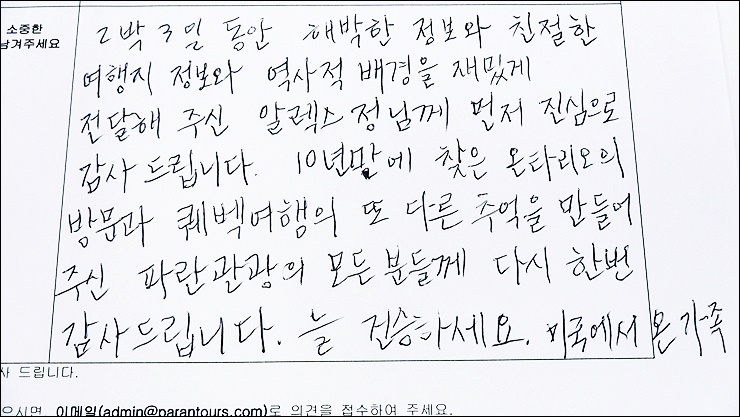 소중한
남겨주세요
2박 3일 동안 해박한 정보와 친절한
여행지 정보와 역사적 배경을 재밌게
전달해 주신 알렉스 정님께 먼저 진심으로
감사 드립니다. 10년만에 찾은 온타리오의
방문과 퀘벡여행의 또 다른 추억을 만들어
주신 파란관광의 모든분들께 다시 한번
감사드립니다. 늘 건승하세요. 미국에서 온 가족
사 드립니다.
으시면 이메일(admin@parantours.com)로 의견을 접수하여 주세요.